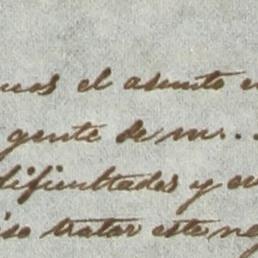 el asunto
gente de m...
dificultades y
tratar este